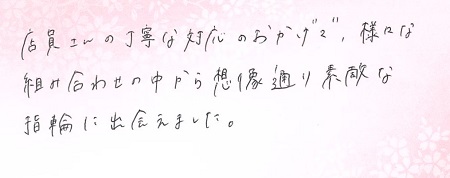 店員さんの丁寧な対応のおかげで、様々な
組み合わせの中から想像通り素敵な
指輪に出会えました。